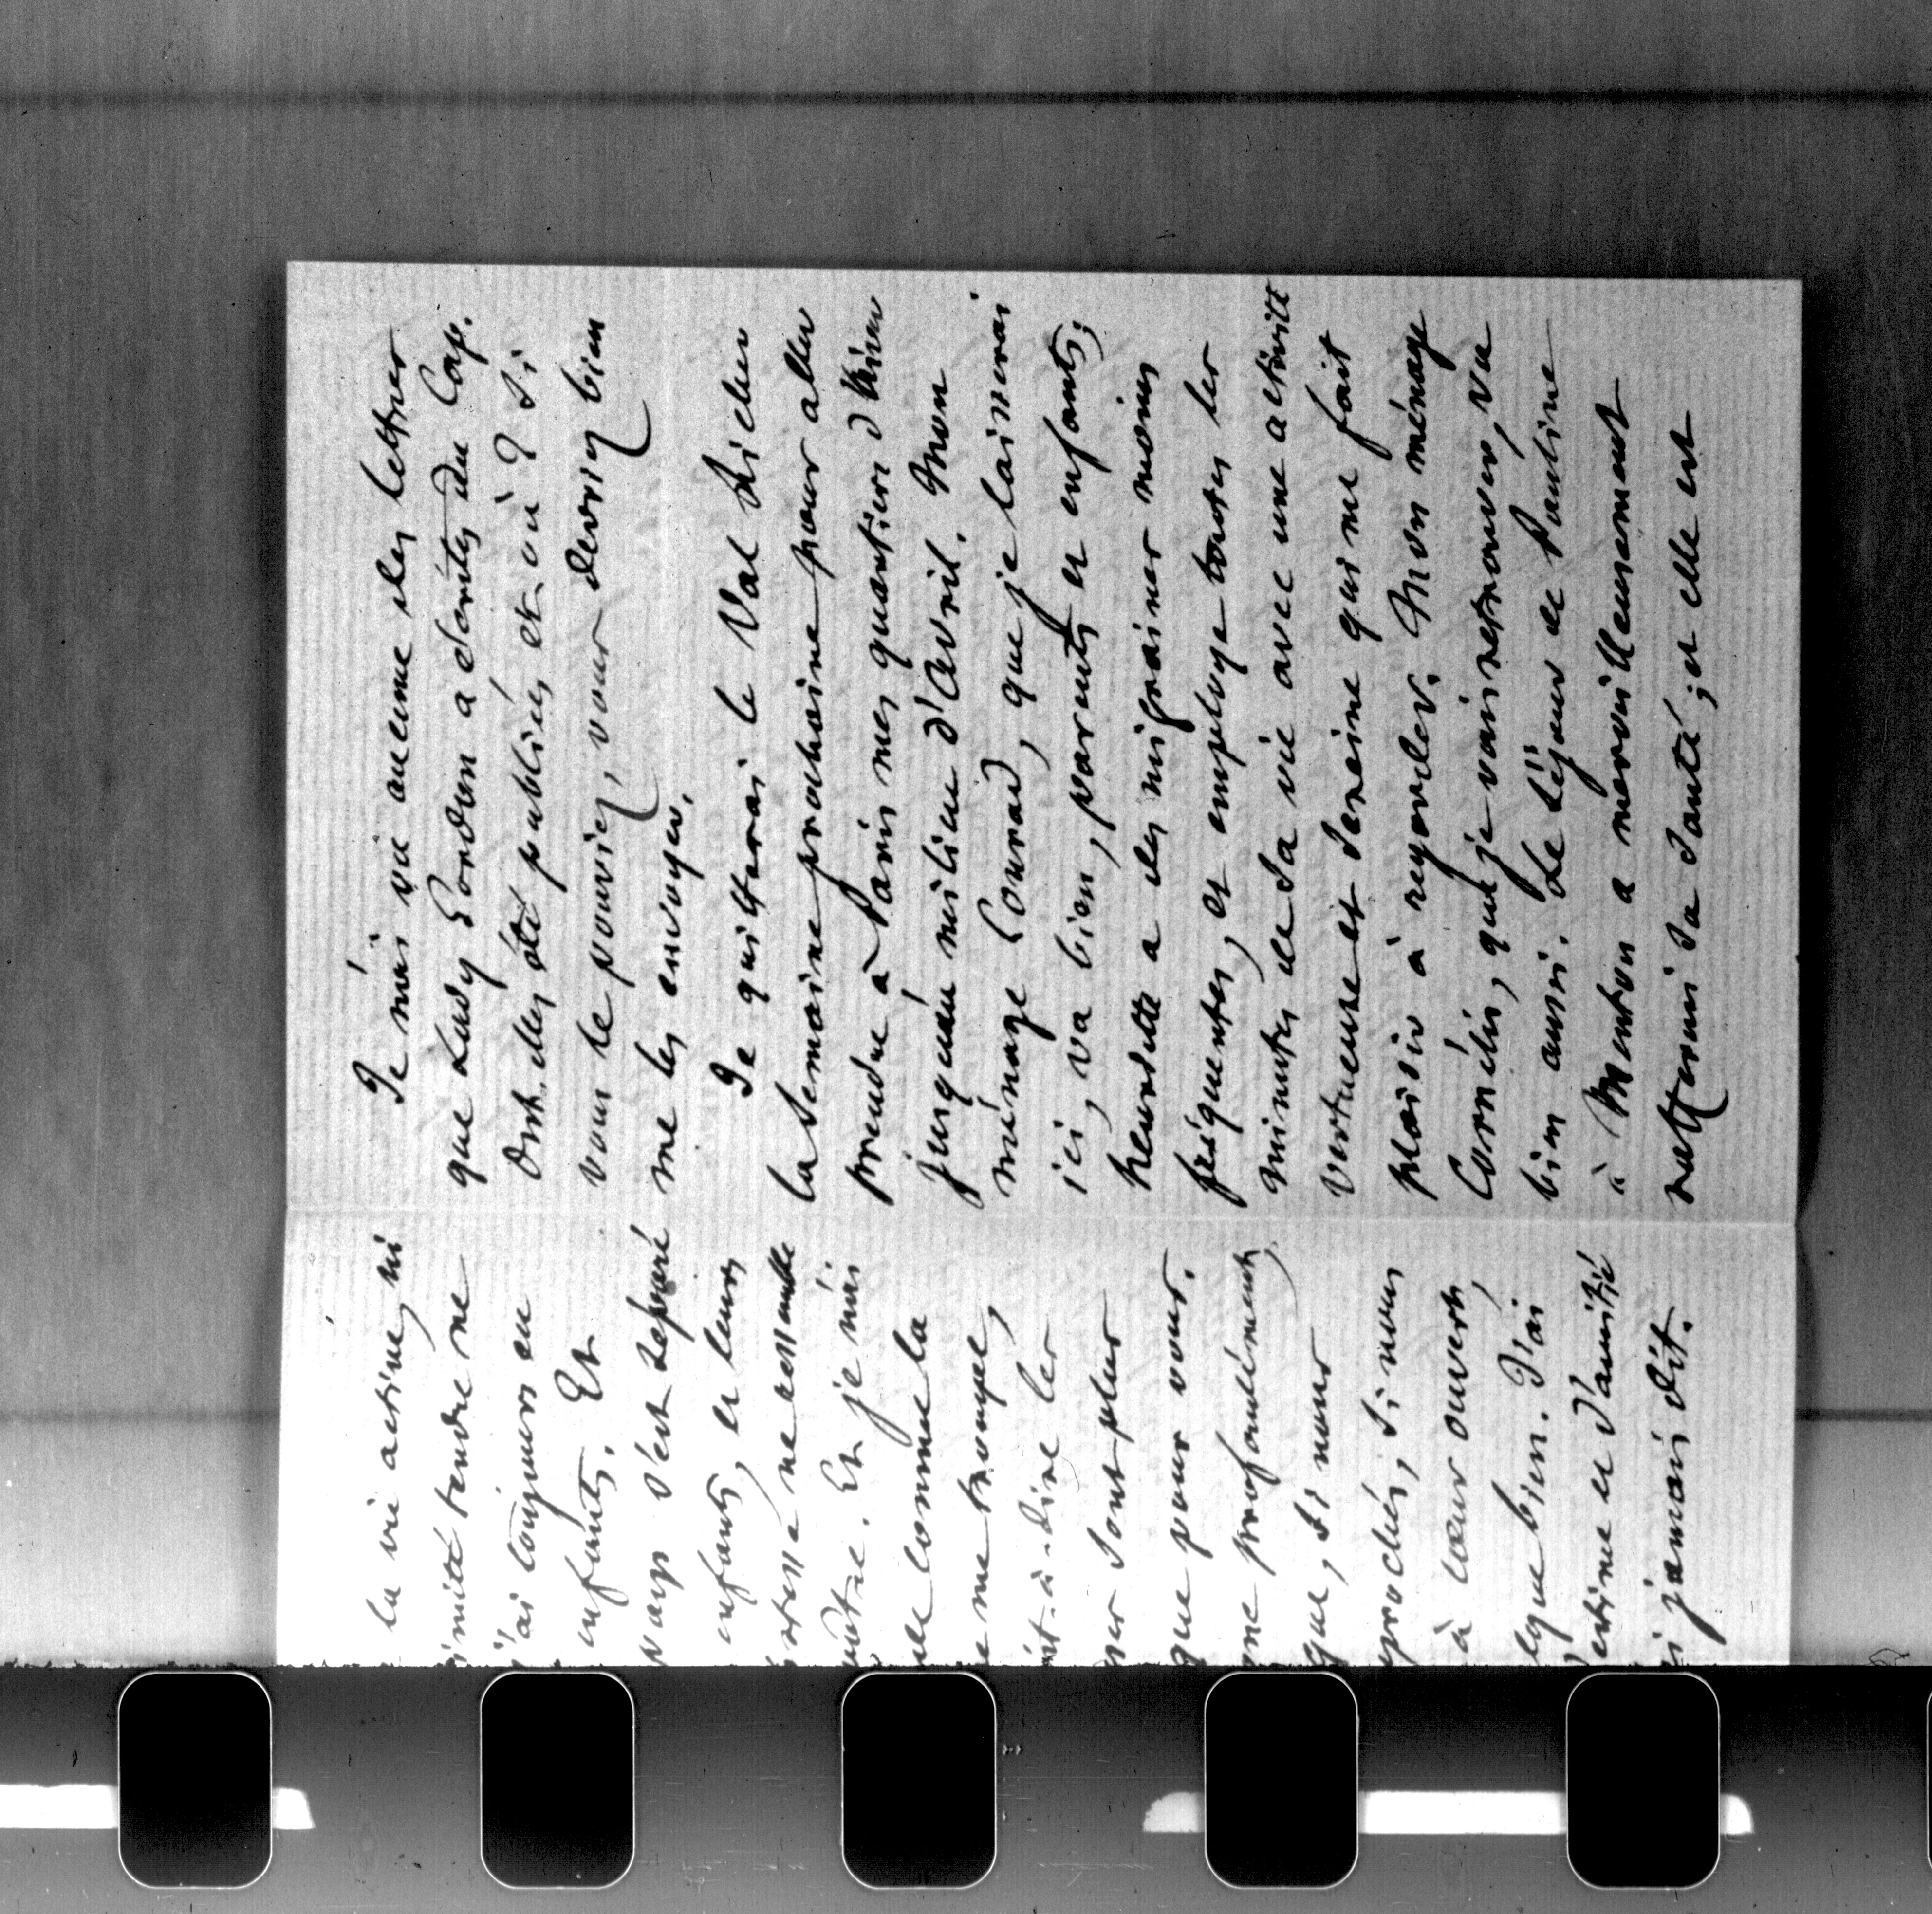 la vie active, ni
tendre ne
j'ai toujours eu
enfants. Et
s'est séparé
enfants, et leurs
ne ressemble
Et je n'ai
comme la
me trompe,
c'est-à-dire les
sont plus
que pour vous.
profondément,
que, si nous
si nous
à cœur ouvert,
bien. J'ai
estime et d'amitié
jamais dit.
Je n'ai vu aucune des lettres
que Lady Gordon a écrites du Cap.
Ont-elles été publiées et où ? Si
vous le pouviez, vous devriez bien
me les envoyer.
Je quitterai le Val Richer
la semaine prochaine pour aller
prendre à Paris mes quartiers d'hiver
jusqu'au milieu d'avril. Mon
ménage Conrad, que je laisserai
ici, va bien, parents et enfants ;
Henriette a des migraines moins
fréquentes, et employe toutes les
minutes de sa vie avec une activité
vertueuse et sereine qui me fait
plaisir à regarder. Mon ménage
Cornélis, que je vais retrouver, va
bien aussi. Le séjour de Pauline
à Menton a merveilleusement
raffermi sa santé ; et elle est